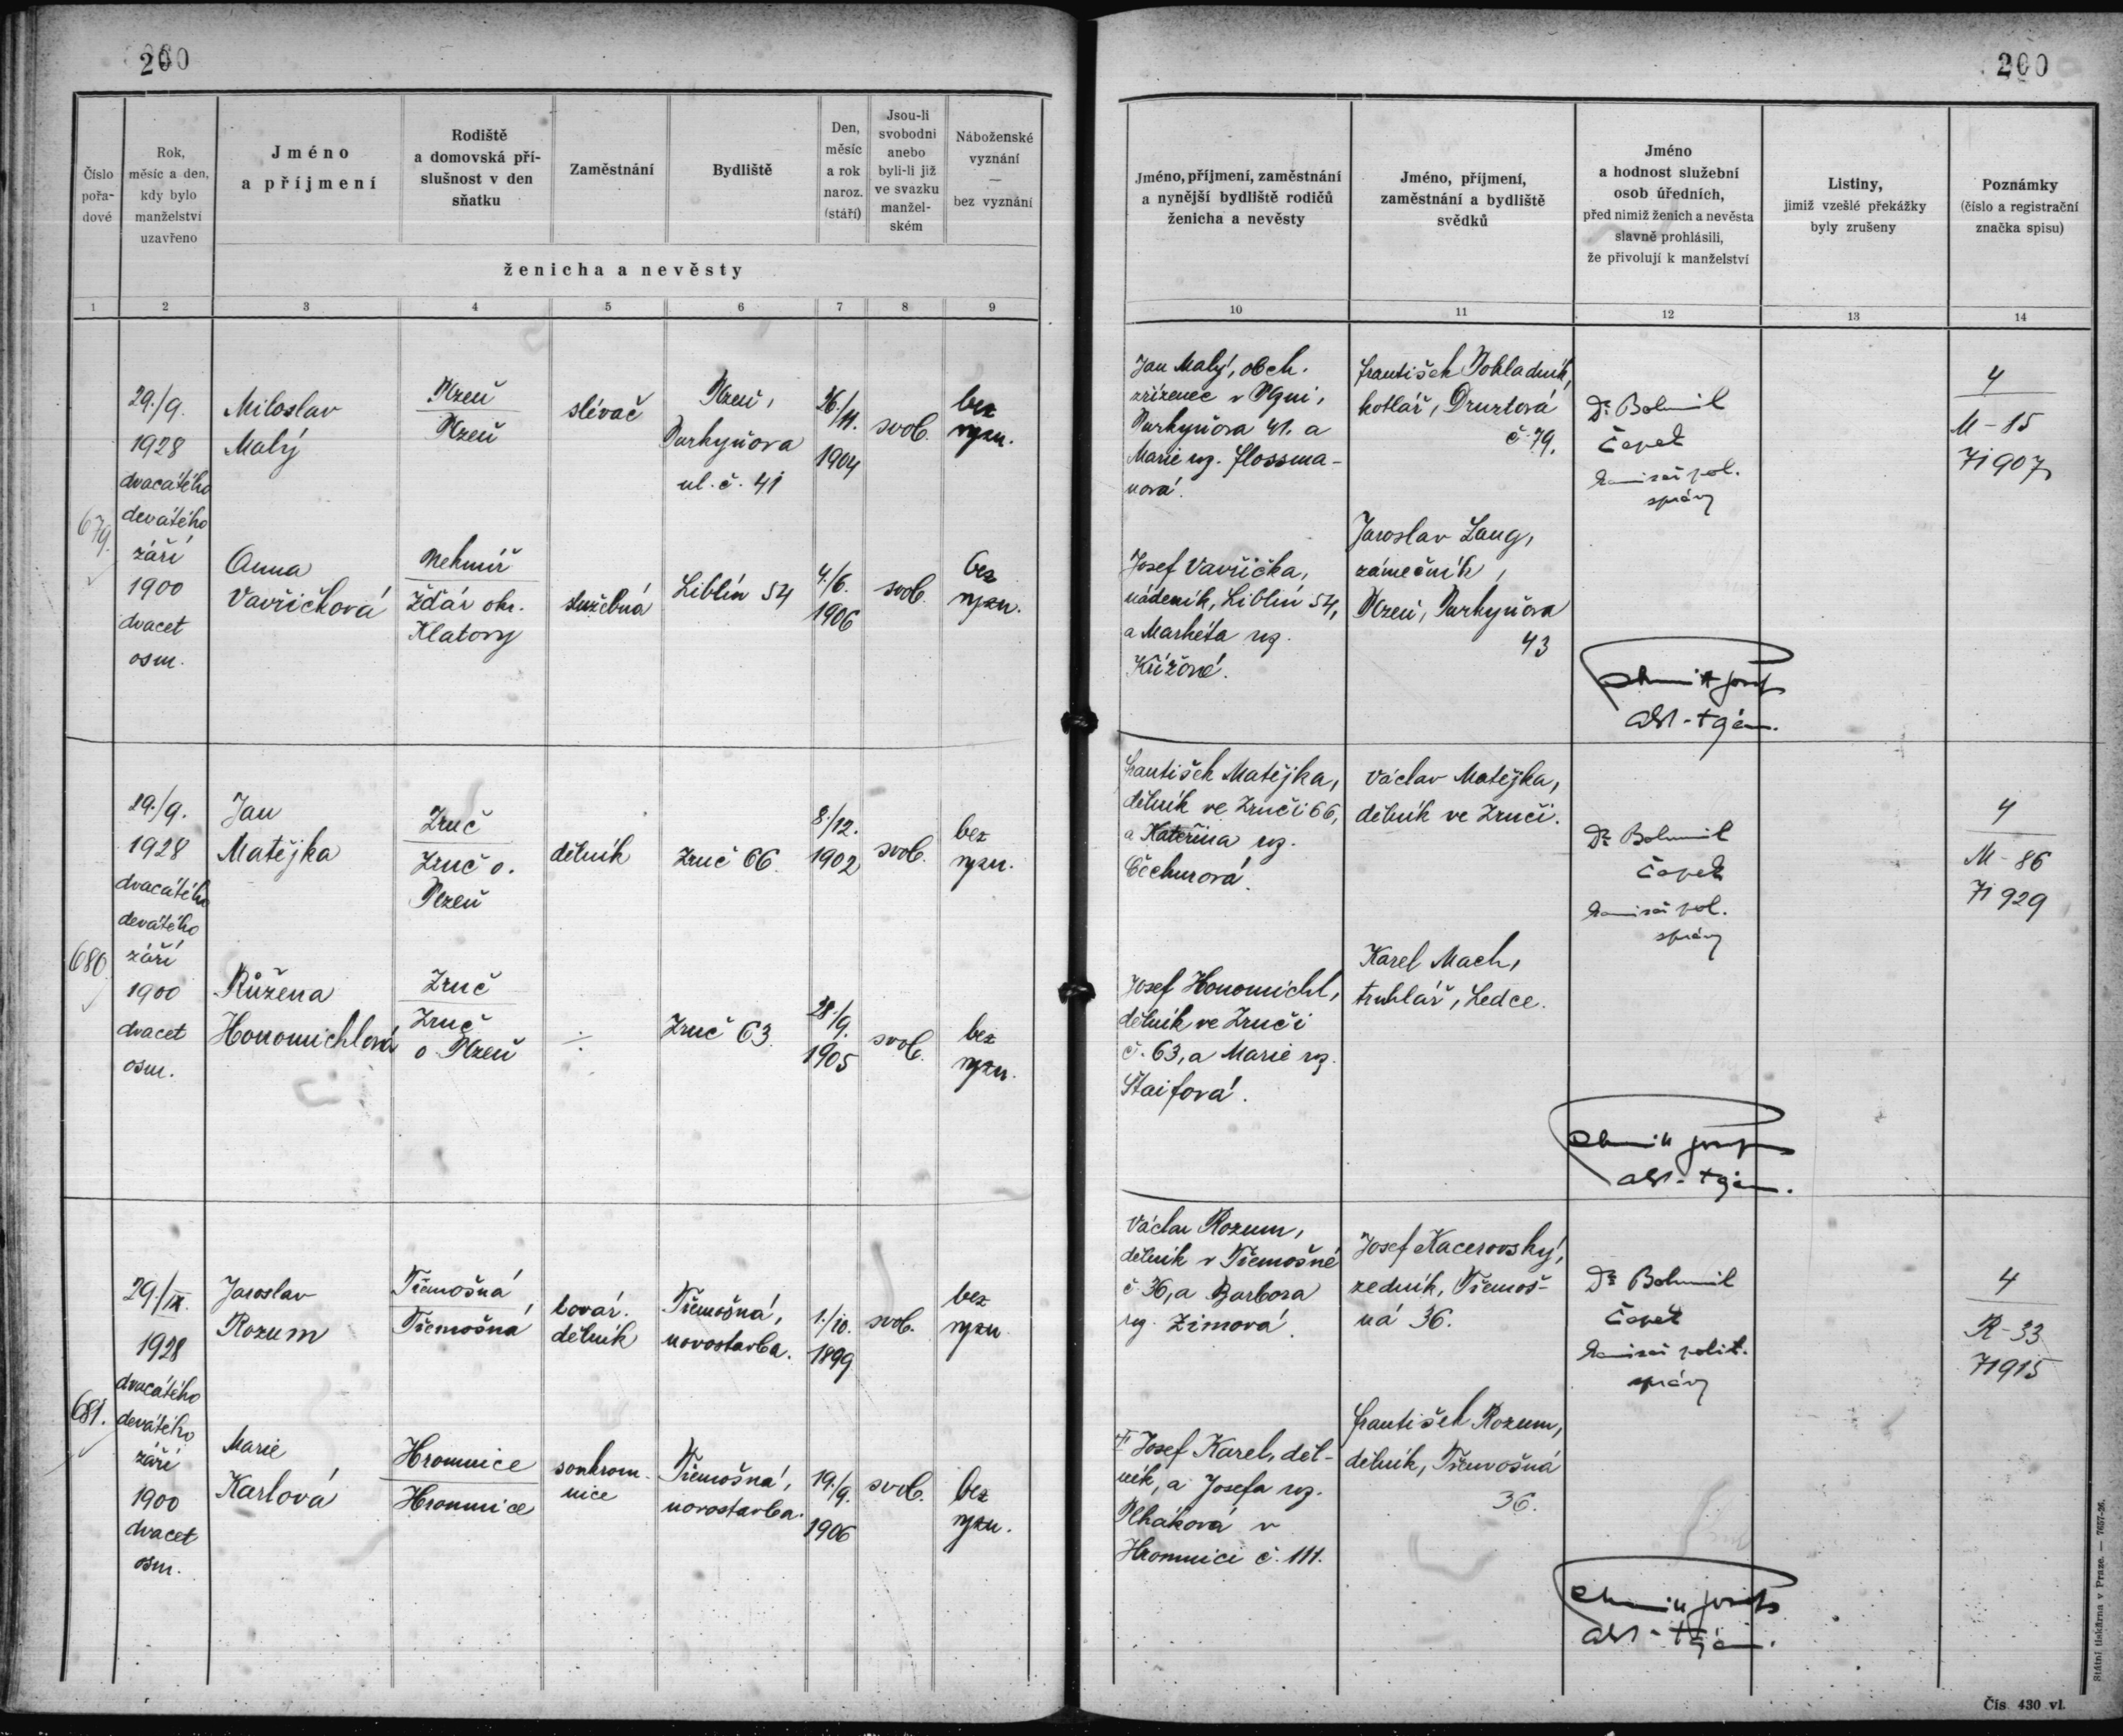 200
Číslo
pořa-
dové
Rok,
měsíc a den,
kdy bylo
manželství
uzavřeno
Jméno
a příjmení
Rodiště
a domovská pří-
slušnost v den
sňatku
Zaměstnání
Bydliště
Den,
měsíc
a rok
naroz.
(stáří)
Jsou-li
svobodni
anebo
byli-li již
ve svazku
manžel-
ském
Náboženské
vyznání
—
bez vyznání
ženicha a nevěsty
1 2 3 4 5 6 7 8 9
679.
29./9.
1928
dvacátého
devátého
září
1900
dvacet
osm.
Miloslav
Malý
Plzeň
Plzeň
slévač
Plzeň,
Purkyňova
ul. č. 41
26./11.
1904
svob.
bez
vyzn.
Anna
Vavřičková
Mehmíř
Žďár okr.
Klatovy
služebná
Liblín 54
4./6.
1906
svob.
bez
vyzn.
680
29./9.
1928
dvacátého
devátého
září
1900
dvacet
osm.
Jan
Matějka
Zruč
Zruč o.
Plzeň
dělník
Zruč 66.
8./12.
1902
svob.
bez
vyzn.
Růžena
Honomichlová
Zruč
Zruč
o Plzeň
÷
Zruč 63.
28./9.
1905
svob.
bez
vyzn.
681.
29./IX.
1928
dvacátého
devátého
září
1900
dvacet
osm.
Jaroslav
Rozum
Třemošná
Třemošná
továr.
dělník
Třemošná,
novostavba.
1./10.
1899
svob.
bez
vyzn
Marie
Karlová
Hromnice
Hromnice
soukrom-
nice
Třemošná,
novostavba.
19./9.
1906
svob.
bez
vyzn.
200
Jméno, příjmení, zaměstnání
a nynější bydliště rodičů
ženicha a nevěsty
Jméno, příjmení,
zaměstnání a bydliště
svědků
Jméno
a hodnost služební
osob úředních,
před nimiž ženich a nevěsta
slavně prohlásili,
že přivolují k manželství
Listiny,
jimiž vzešlé překážky
byly zrušeny
Poznámky
(číslo a registrační
značka spisu)
10 11 12 13 14
Jan Malý, obch.
zřízenec v Plzni,
Purkyňova 41. a
Marie roz. Flossma-
nová.
František Pokladník,
kotlář, Druztová
č. 79.
Dr. Bohumil
Čapek
komisař pol.
správy
4
M - 15
71907
Josef Vavřička,
nádeník, Liblín 54,
a Markéta roz.
Křížová.
Jaroslav Lang,
zámečník,
Plzeň, Purkyňova
43
František Matějka,
dělník ve Zruči 66,
a Kateřina roz.
Čechurová.
Václav Matějka,
dělník ve Zruči.
Dr. Bohumil
Čapek
komisař pol.
správy
4
M - 86
71929
Josef Honomichl,
dělník ve Zruči
č. 63, a Marie roz.
Štaifová.
Karel Mach,
truhlář, Ledce.
Václav Rozum,
dělník v Třemošné
č. 36, a Barbora
roz. Zimová.
Josef Kacerovský,
zedník, Třemoš-
ná 36.
Dr. Bohumil
Čapek
komisař polit.
správy
4
R - 33
71915
† Josef Karel, děl-
ník, a Josefa roz.
Plháková v
Hromnici č. 111.
František Rozum,
dělník, Třemošná
36.
Státní tiskárna v Praze. — 7657-26.
Čís. 430 vl.